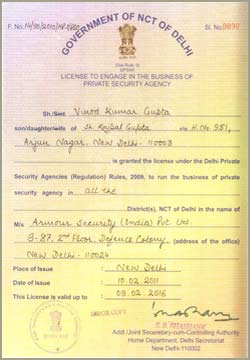 F. No.
Sl. No. 0090
GOVERNMENT OF NCT OF DELHI
LICENSE TO ENGAGE IN THE BUSINESS OF
PRIVATE SECURITY AGENCY
Sh./Smt. Vinod Kumar Gupta
son/daughter/wife of Sh. Gupta r/o H. No. 951,
Arjun Nagar, New Delhi - 110003
is granted the license under the Delhi Private
Security Agencies (Regulation) Rules, 2009, to run the business of private
security agency in all the
District(s), NCT of Delhi in the name of
M/s Armour Security (India) Pvt. Ltd.
B-87, 2nd Floor, Defence Colony, (address of the office)
New Delhi - 110024
Place of Issue : New Delhi
Date of Issue : 10.02.2011
This License is valid up to : 09.02.2016
OFFICE COPY
Addl. Joint Secretary-cum-Controlling Authority
Home Department, Delhi Secretariat
New Delhi-110002